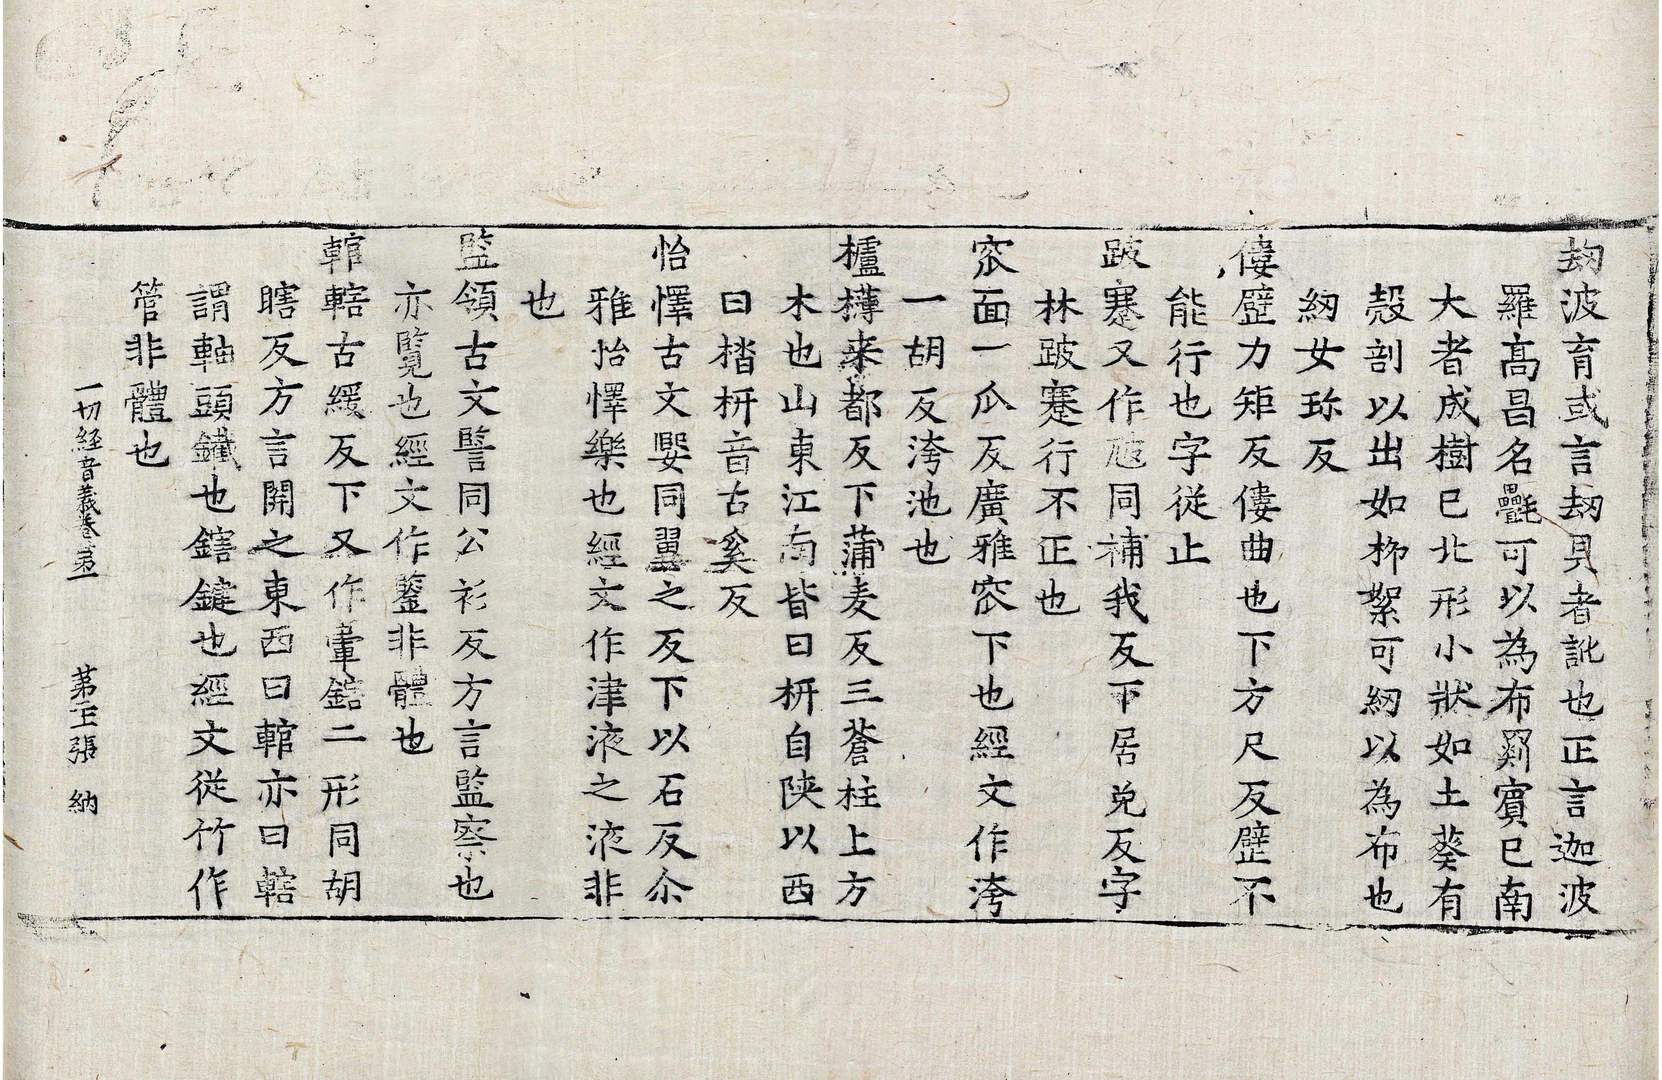 劫波育或言劫貝者訛也正言迦波
羅高昌名㲲可以為布罽賓已南
大者成樹已北形小狀如土葵有
殼剖以出如柳絮可紉以為布也
紉女珎反
僂躄力矩反僂曲也下方尺反躄不
能行也字從止
跛蹇又作𡯁同補我反下居免反字
林跛蹇行不正也
窊面一瓜反廣雅窊下也經文作洿
一胡反洿池也
櫨欂来都反下蒲麦反三蒼柱上方
木也山東江南皆曰枅自陝以西
曰楷枅音古奚反
怡懌古文嬰同翼之反下以石反尒
雅怡懌樂也經文作津液之液非
也
監領古文譼同公衫反方言監察也
亦覽也經文作鑒非體也
輨轄古緩反下又作舝鎋二形同胡
瞎反方言關之東西曰輨亦曰轄
謂軸頭鐵也鎋鍵也經文從竹作
管非體也
一切経音義卷苐一 苐五張 納